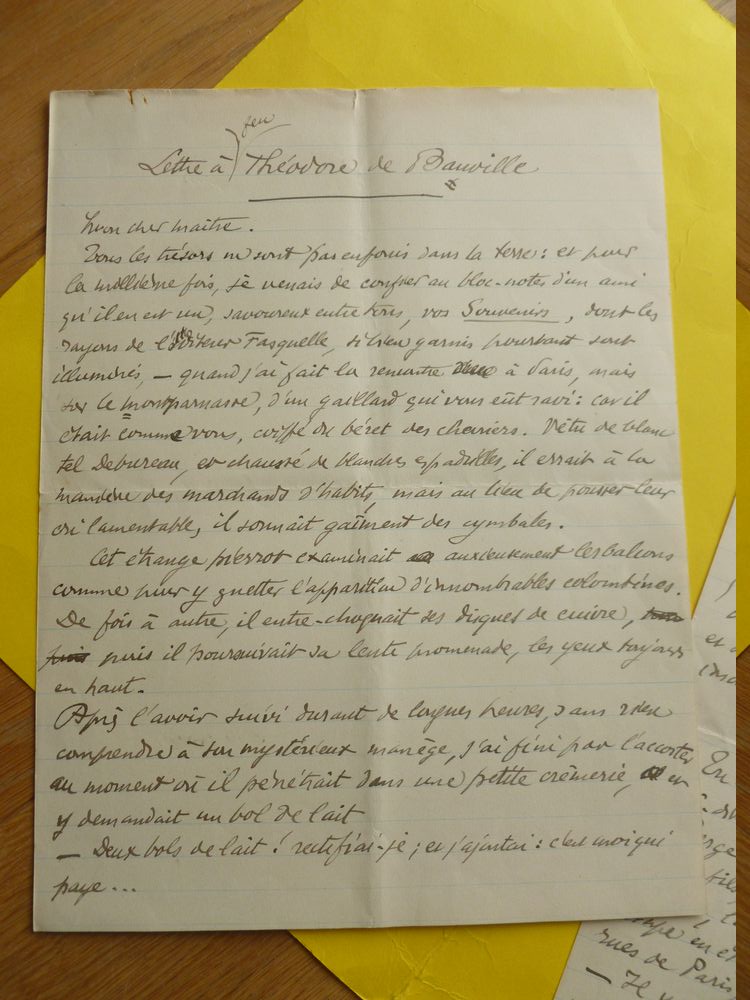 feu
Lettre à Théodore de Banville
Mon cher maître.
Tous les trésors ne sont pas enfouis dans la terre : et pour
la millième fois, je venais de confier au bloc-notes d'un ami
qu'il en est un, savoureux entre tous, vos Souvenirs, dont les
rayons de l'éditeur Fasquelle, si bien garnis pourtant sont
illuminés, — quand j'ai fait la rencontre à Paris, mais
sur le montparnasse, d'un gaillard qui vous eût ravi : car il
était comme vous, coiffé du béret des chevriers. Vêtu de blanc
tel Debureau, et chaussé de blanches espadrilles, il errait à la
manière des marchands d'habits, mais au lieu de pousser leur
cri lamentable, il sonnait gaîment des cymbales.
Cet étrange pierrot examinait anxieusement les balcons
comme pour y guetter l'apparition d'innombrables colombines.
De fois à autre, il entre-choquait ses disques de cuivre,
puis il poursuivait sa lente promenade, les yeux toujours
en haut.
Après l'avoir suivi durant de longues heures, sans rien
comprendre à son mystérieux manège, j'ai fini par l'accoster
au moment où il pénétrait dans une petite crèmerie, et
y demandait un bol de lait
— Deux bols de lait ! rectifiai-je ; et j'ajoutai : c'est moi qui
paye...
et
En
en et
rues de Paris
— Je